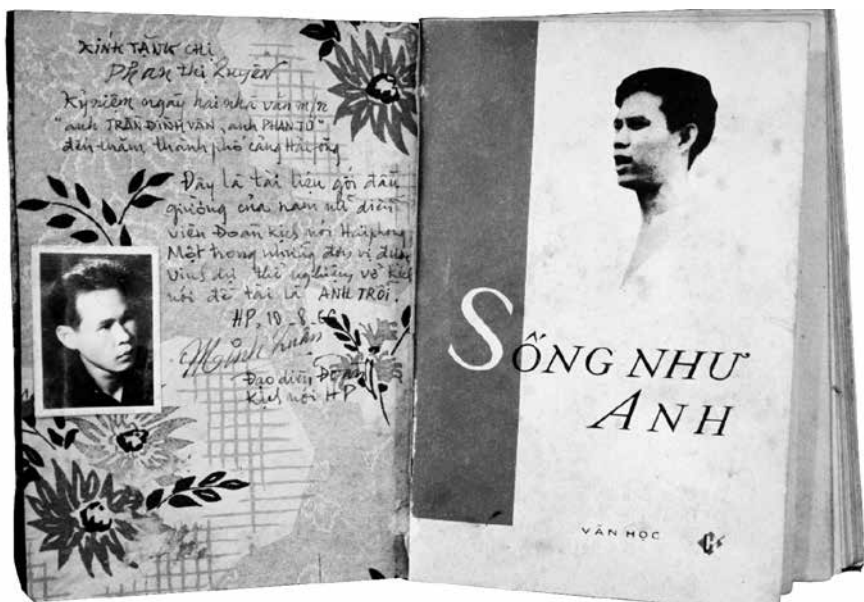 KÍNH TẶNG CHỊ
Phan thị Quyên
Kỷ niệm ngày hai nhà văn m/n
"anh TRẦN ĐÌNH VÂN, anh PHAN TỨ"
đến thăm thành phố cảng Hải phòng
Đây là tài liệu gối đầu
giường của nam nữ diễn
viên Đoàn kịch nói Hải phòng
Một trong những đơn vị được
vinh dự thể nghiệm vở kịch
nói đề tài là ANH TRỖI.
HP, 10-8-66
Minh
Đạo diễn Đoàn
kịch nói HP
SỐNG NHƯ
ANH
VĂN HỌC